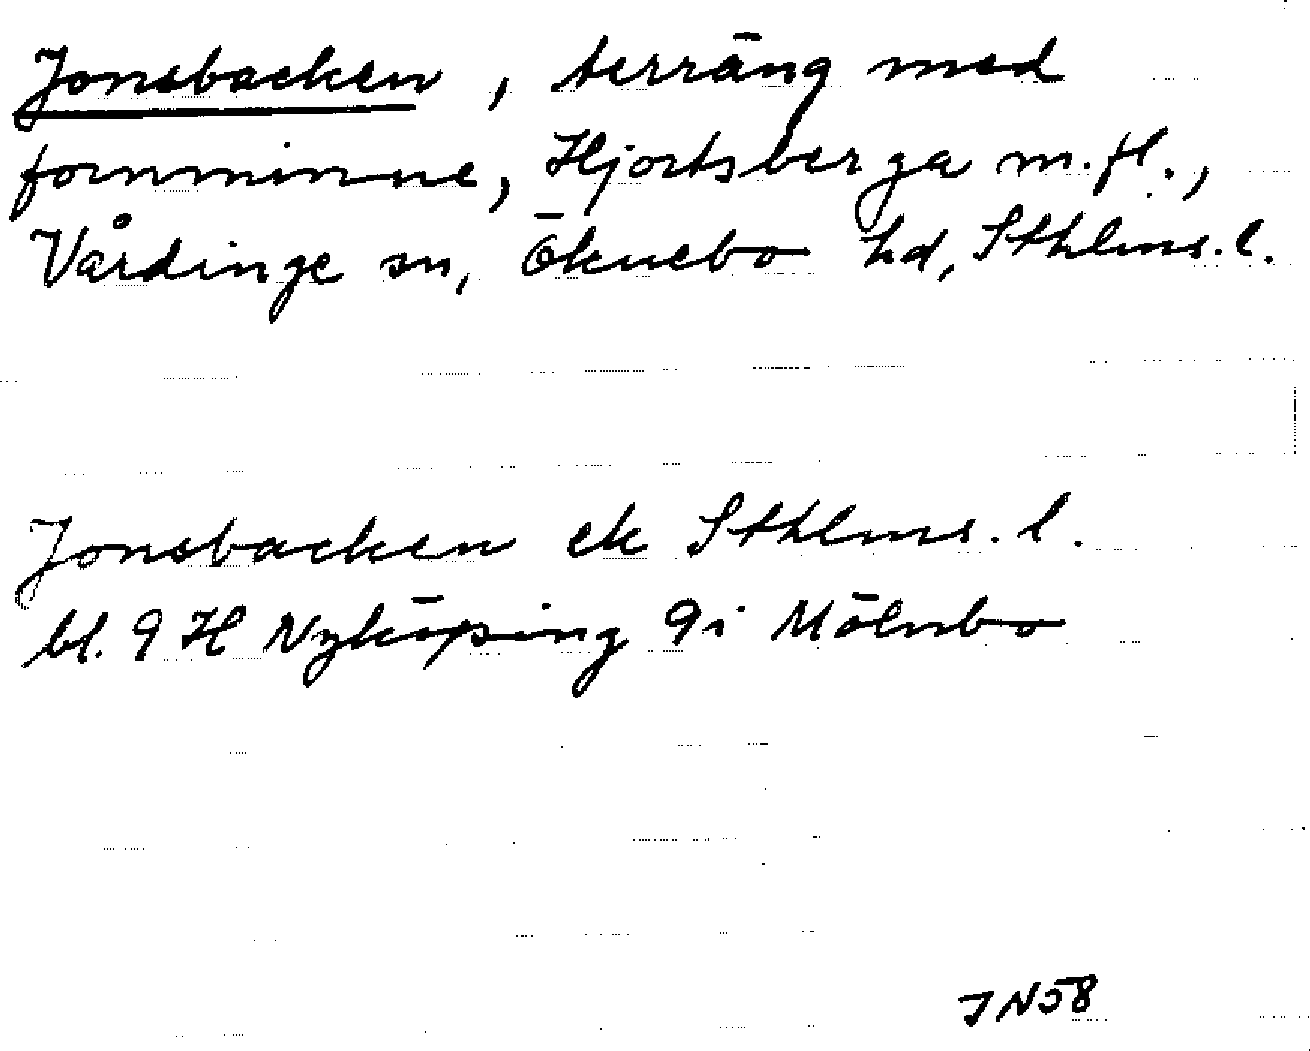 Jonsbacken, terräng med
fornminne, Hjortsberga m.fl.,
Vårdinge sn, Öknebo hd, Sthlms.l.
Jonsbacken ek Sthlms.l.
bl. 9 H Nyköping 9i Mölnbo
JN58